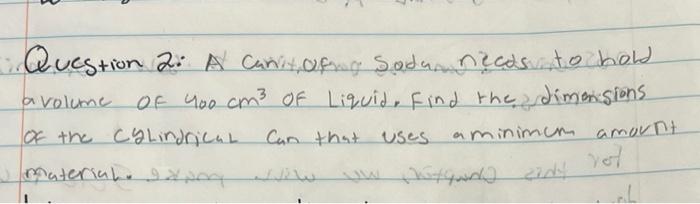 Question 2: A can of soda needs to hold
a volume OF 400 cm³ OF Liquid. Find the dimensions
OF the CYLindricaL Can that uses a minimum amount
material.